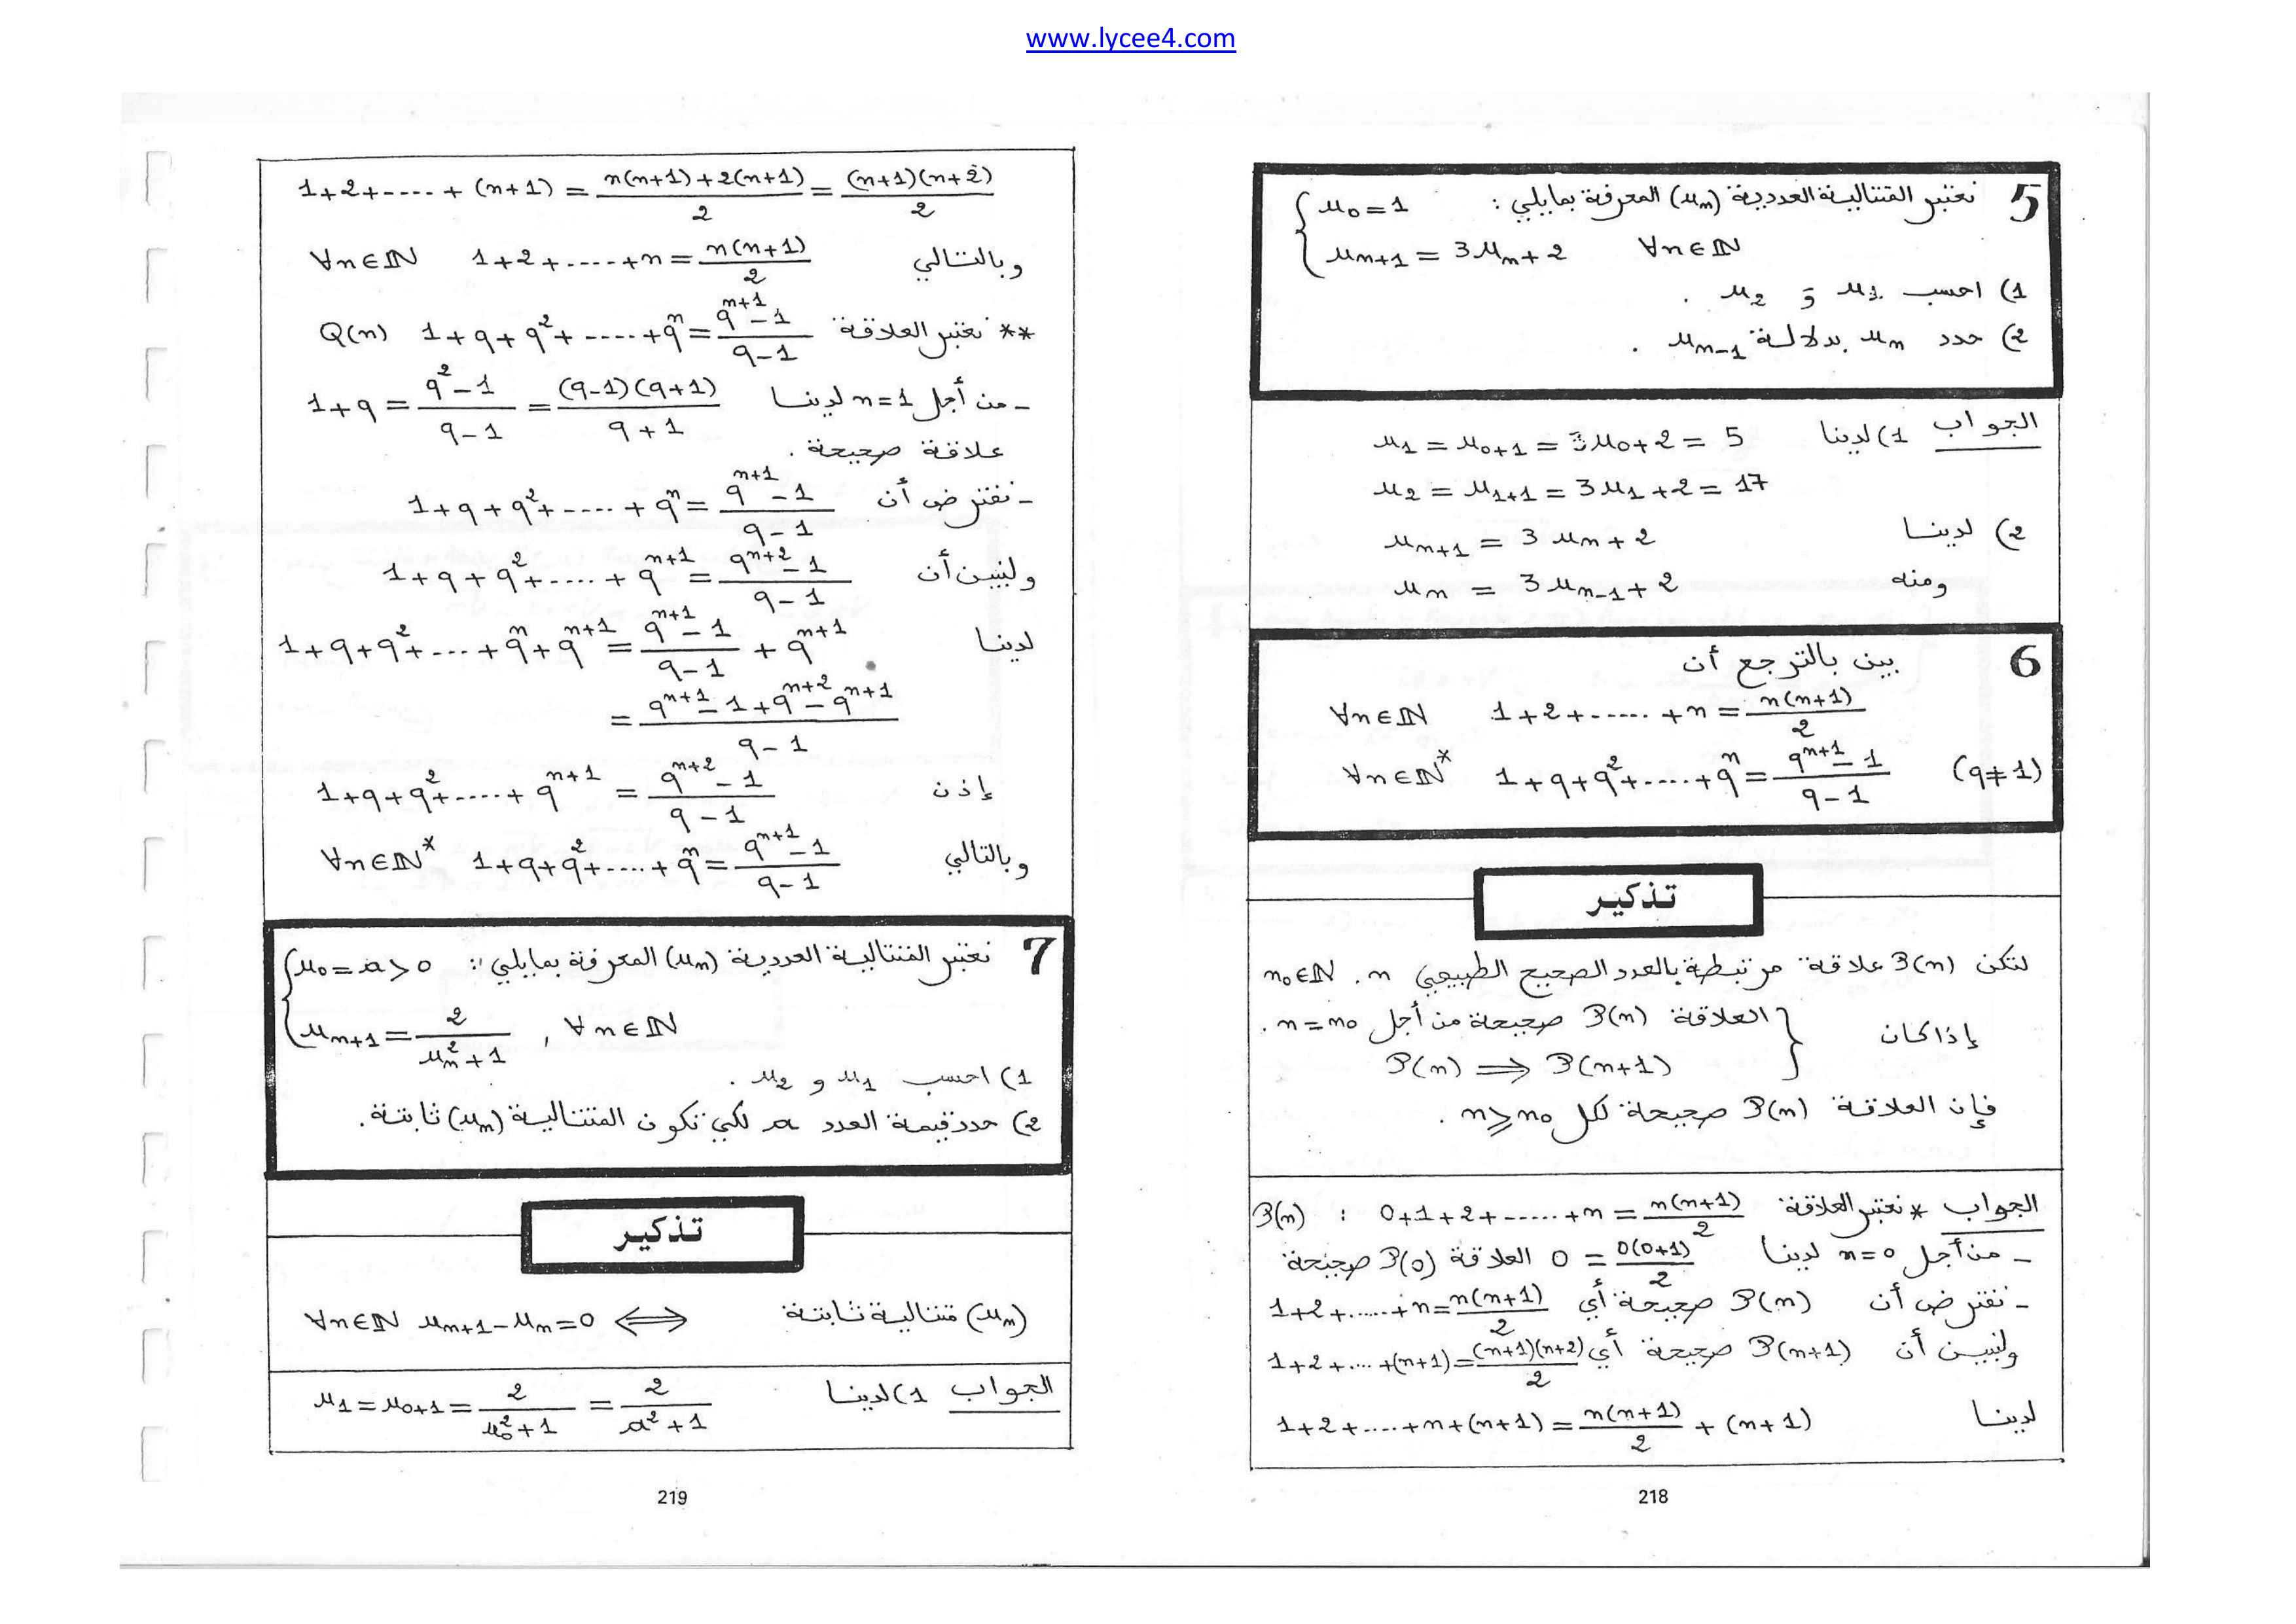 www.lycee4.com
5 نعتبر المتتالية العددية (u_n) المعرفة بمايلي : { u_0 = 1
u_{n+1} = 3u_n + 2 ∀n∈ℕ
1) احسب u_1 و u_2 .
2) حدد u_n بدلالة u_{n-1} .
الجواب 1) لدينا u_1 = u_{0+1} = 3u_0 + 2 = 5
u_2 = u_{1+1} = 3u_1 + 2 = 17
2) لدينا u_{n+1} = 3u_n + 2
ومنه u_n = 3u_{n-1} + 2
6 بين بالترجع أن
∀n∈ℕ 1+2+......+n = \frac{n(n+1)}{2}
∀n∈ℕ* 1+q+q²+.....+q^n = \frac{q^{n+1}-1}{q-1} (q≠1)
تذكير
لتكن P(n) علاقة مرتبطة بالعدد الصحيح الطبيعي n . n_0∈ℕ
إذا كان { العلاقة P(n) صحيحة من أجل n = n_0 .
P(n) ⟹ P(n+1)
فإن العلاقة P(n) صحيحة لكل n ≥ n_0 .
الجواب * نعتبر العلاقة P(n) : 0+1+2+......+n = \frac{n(n+1)}{2}
- من أجل n=0 لدينا 0 = \frac{0(0+1)}{2} العلاقة P(0) صحيحة
- نفترض أن P(n) صحيحة أي 1+2+......+n = \frac{n(n+1)}{2}
ولنبين أن P(n+1) صحيحة أي 1+2+....+(n+1) = \frac{(n+1)(n+2)}{2}
لدينا 1+2+....+n+(n+1) = \frac{n(n+1)}{2} + (n+1)
218
1+2+....+(n+1) = \frac{n(n+1)+2(n+1)}{2} = \frac{(n+1)(n+2)}{2}
وبالتالي ∀n∈ℕ 1+2+.....+n = \frac{n(n+1)}{2}
** نعتبر العلاقة Q(n) 1+q+q²+.....+q^n = \frac{q^{n+1}-1}{q-1}
- من أجل n=1 لدينا 1+q = \frac{q²-1}{q-1} = \frac{(q-1)(q+1)}{q+1}
علاقة صحيحة .
- نفترض أن 1+q+q²+.....+q^n = \frac{q^{n+1}-1}{q-1}
ولنبين أن 1+q+q²+....+q^{n+1} = \frac{q^{n+2}-1}{q-1}
لدينا 1+q+q²+...+q^n+q^{n+1} = \frac{q^{n+1}-1}{q-1} + q^{n+1}
= \frac{q^{n+1}-1+q^{n+2}-q^{n+1}}{q-1}
إذن 1+q+q²+.....+q^{n+1} = \frac{q^{n+2}-1}{q-1}
وبالتالي ∀n∈ℕ* 1+q+q²+....+q^n = \frac{q^{n+1}-1}{q-1}
7 نعتبر المتتالية العددية (u_n) المعرفة بمايلي : { u_0 = a > 0
u_{n+1} = \frac{2}{u_n²+1} , ∀n∈ℕ
1) احسب u_1 و u_2 .
2) حدد قيمة العدد a لكي تكون المتتالية (u_n) ثابتة .
تذكير
(u_n) متتالية ثابتة ⟺ ∀n∈ℕ u_{n+1} - u_n = 0
الجواب 1) لدينا u_1 = u_{0+1} = \frac{2}{u_0²+1} = \frac{2}{a²+1}
219